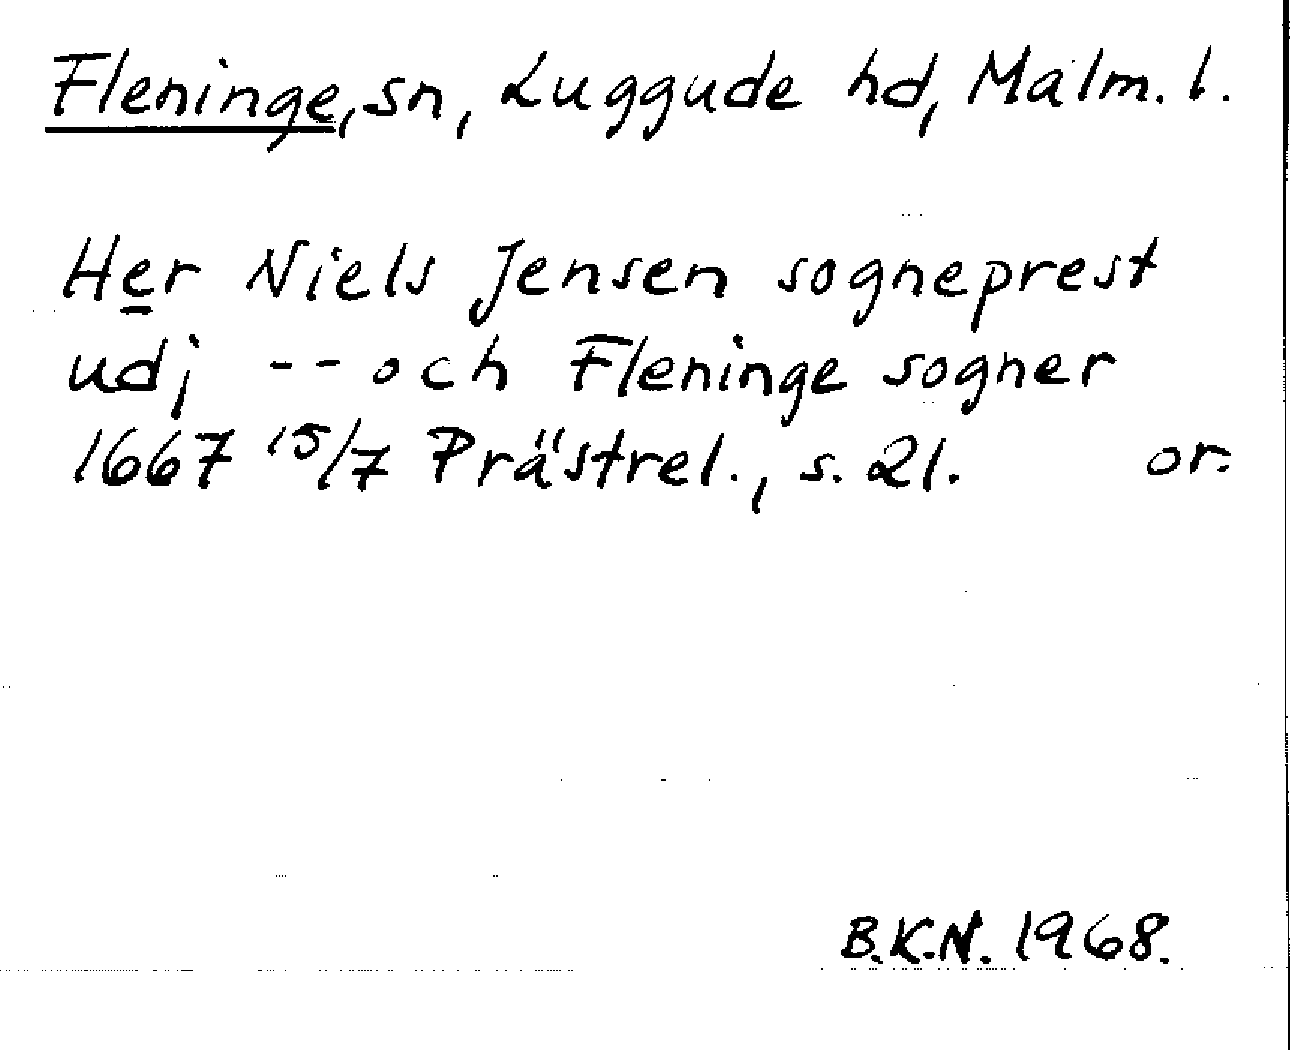 Fleninge, sn, Luggude hd, Malm. l.
Her Niels Jensen sogneprest
udj -- och Fleninge sogner
1667 15/7 Prästrel., s. 21. or.
B.K.N. 1968.